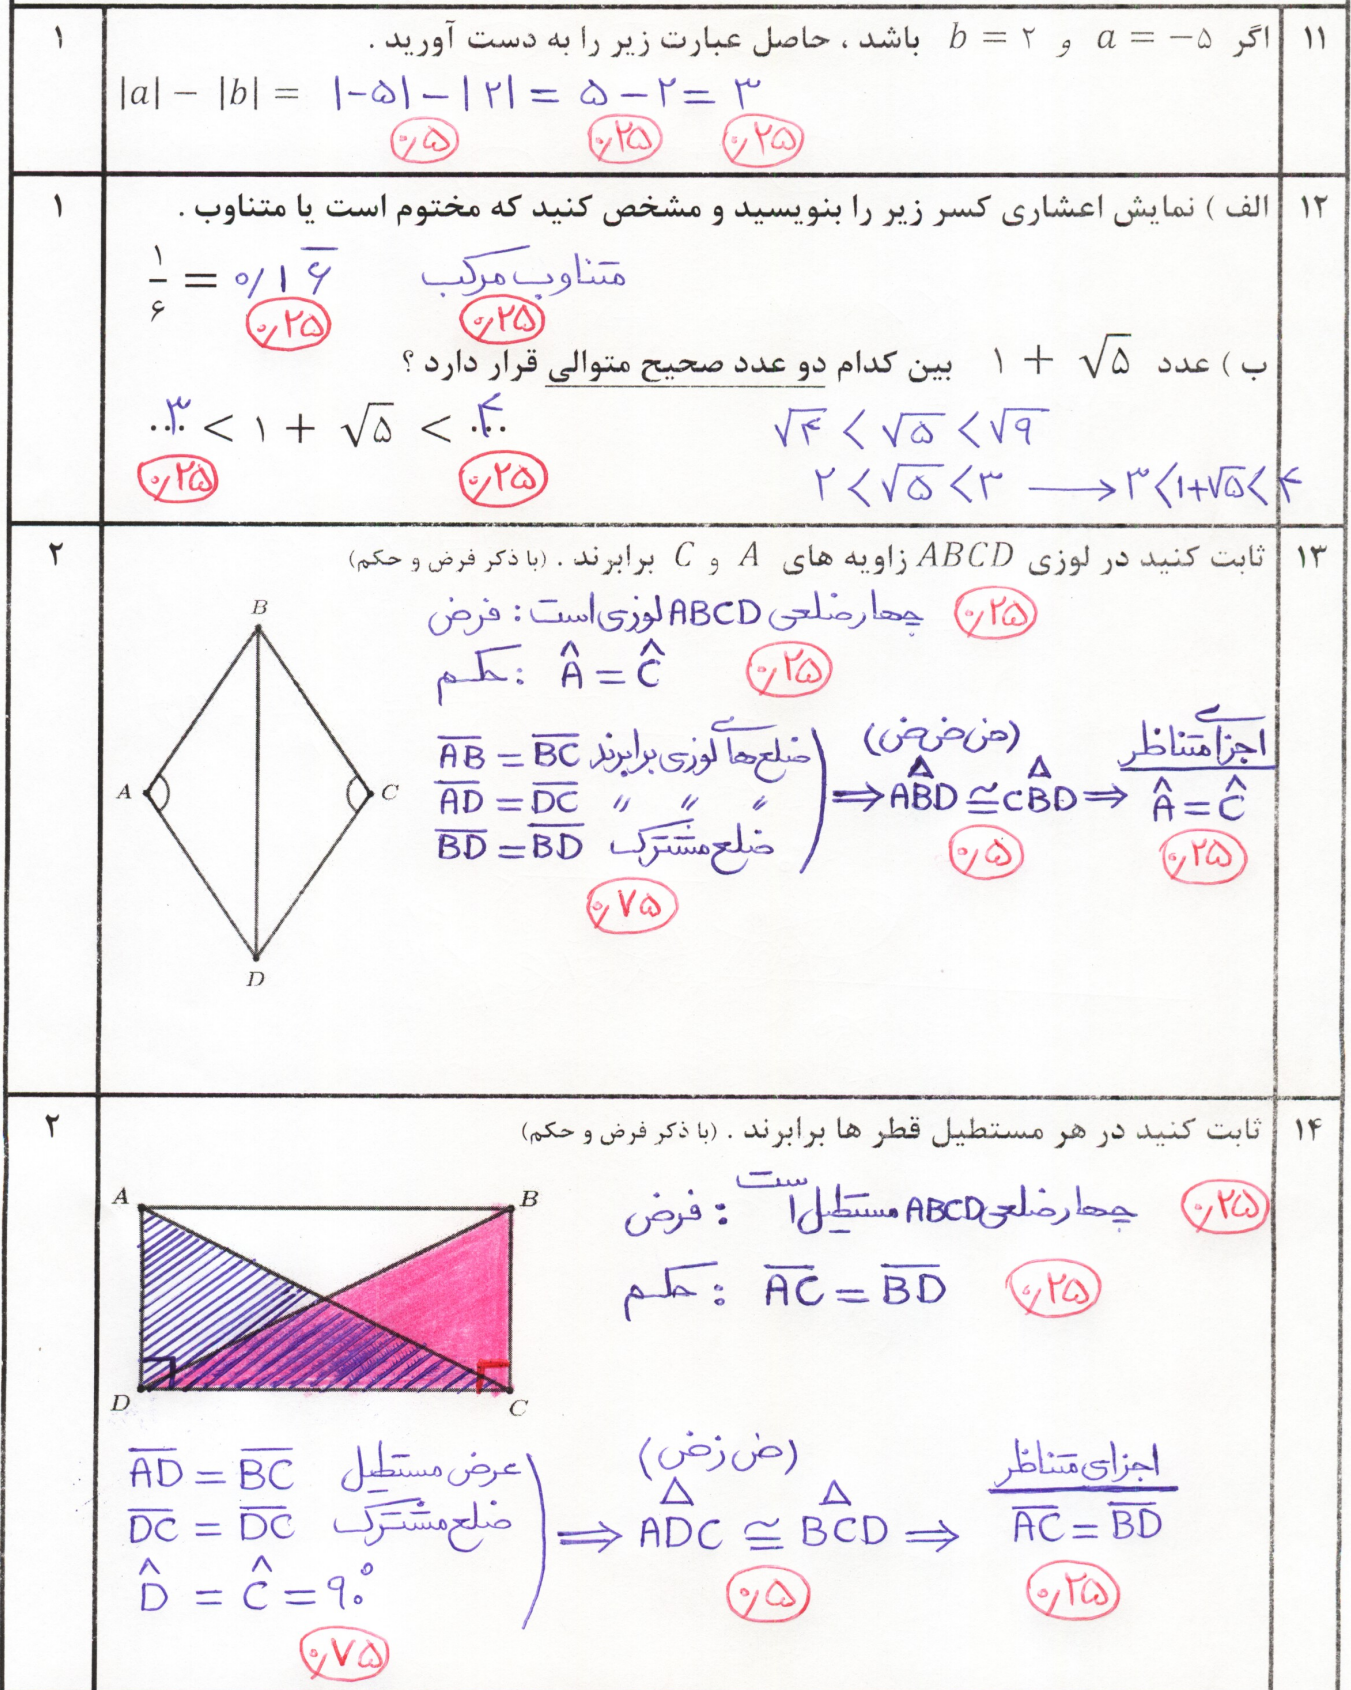 ۱۱ اگر a = −۵ و b = ۲ باشد ، حاصل عبارت زیر را به دست آورید . ۱
|a| − |b| = |−۵| − |۲| = ۵ − ۲ = ۳
۰/۵ ۰/۲۵ ۰/۲۵
۱۲ الف ) نمایش اعشاری کسر زیر را بنویسید و مشخص کنید که مختوم است یا متناوب . ۱
۱/۶ = ۰/۱۶̅ متناوب مرکب
۰/۲۵ ۰/۲۵
ب ) عدد ۱ + √۵ بین کدام دو عدد صحیح متوالی قرار دارد ؟
..۳.. < ۱ + √۵ < ..۴.. √۴ < √۵ < √۹
۰/۲۵ ۰/۲۵ ۲ < √۵ < ۳ → ۳ < ۱+√۵ < ۴
۱۳ ثابت کنید در لوزی ABCD زاویه های A و C برابرند . (با ذکر فرض و حکم) ۲
فرض : چهارضلعی ABCD لوزی است ۰/۲۵
حکم : Â = Ĉ ۰/۲۵
B
A
C
D
AB = BC ضلع‌های لوزی برابرند
AD = DC 〃 〃 〃
BD = BD ضلع مشترک
۰/۷۵
(ض ض ض)
⇒ ABD ≅ CBD ⇒
۰/۵
اجزای متناظر
Â = Ĉ
۰/۲۵
۱۴ ثابت کنید در هر مستطیل قطر ها برابرند . (با ذکر فرض و حکم) ۲
فرض : چهارضلعی ABCD مستطیل است ۰/۲۵
حکم : AC = BD ۰/۲۵
A B
D C
AD = BC عرض مستطیل
DC = DC ضلع مشترک
D̂ = Ĉ = ۹۰°
۰/۷۵
(ض ز ض)
⇒ ADC ≅ BCD ⇒
۰/۵
اجزای متناظر
AC = BD
۰/۲۵